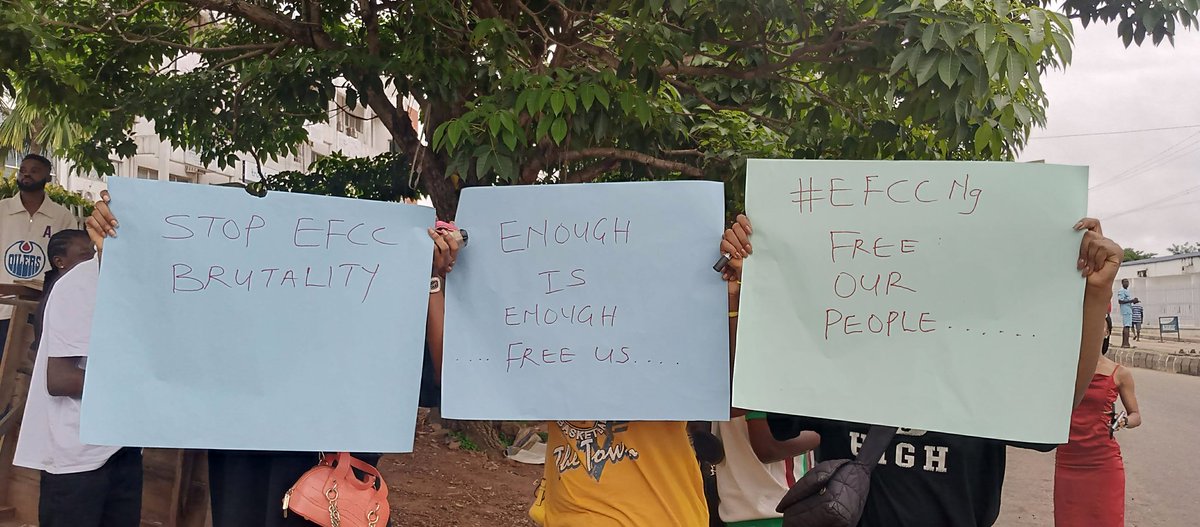 STOP EFCC
BRUTALITY
ENOUGH
IS
ENOUGH
.... FREE US....
#EFCCNg
FREE
OUR
PEOPLE.......
A
OILERS
BASKET
The Town
HIGH